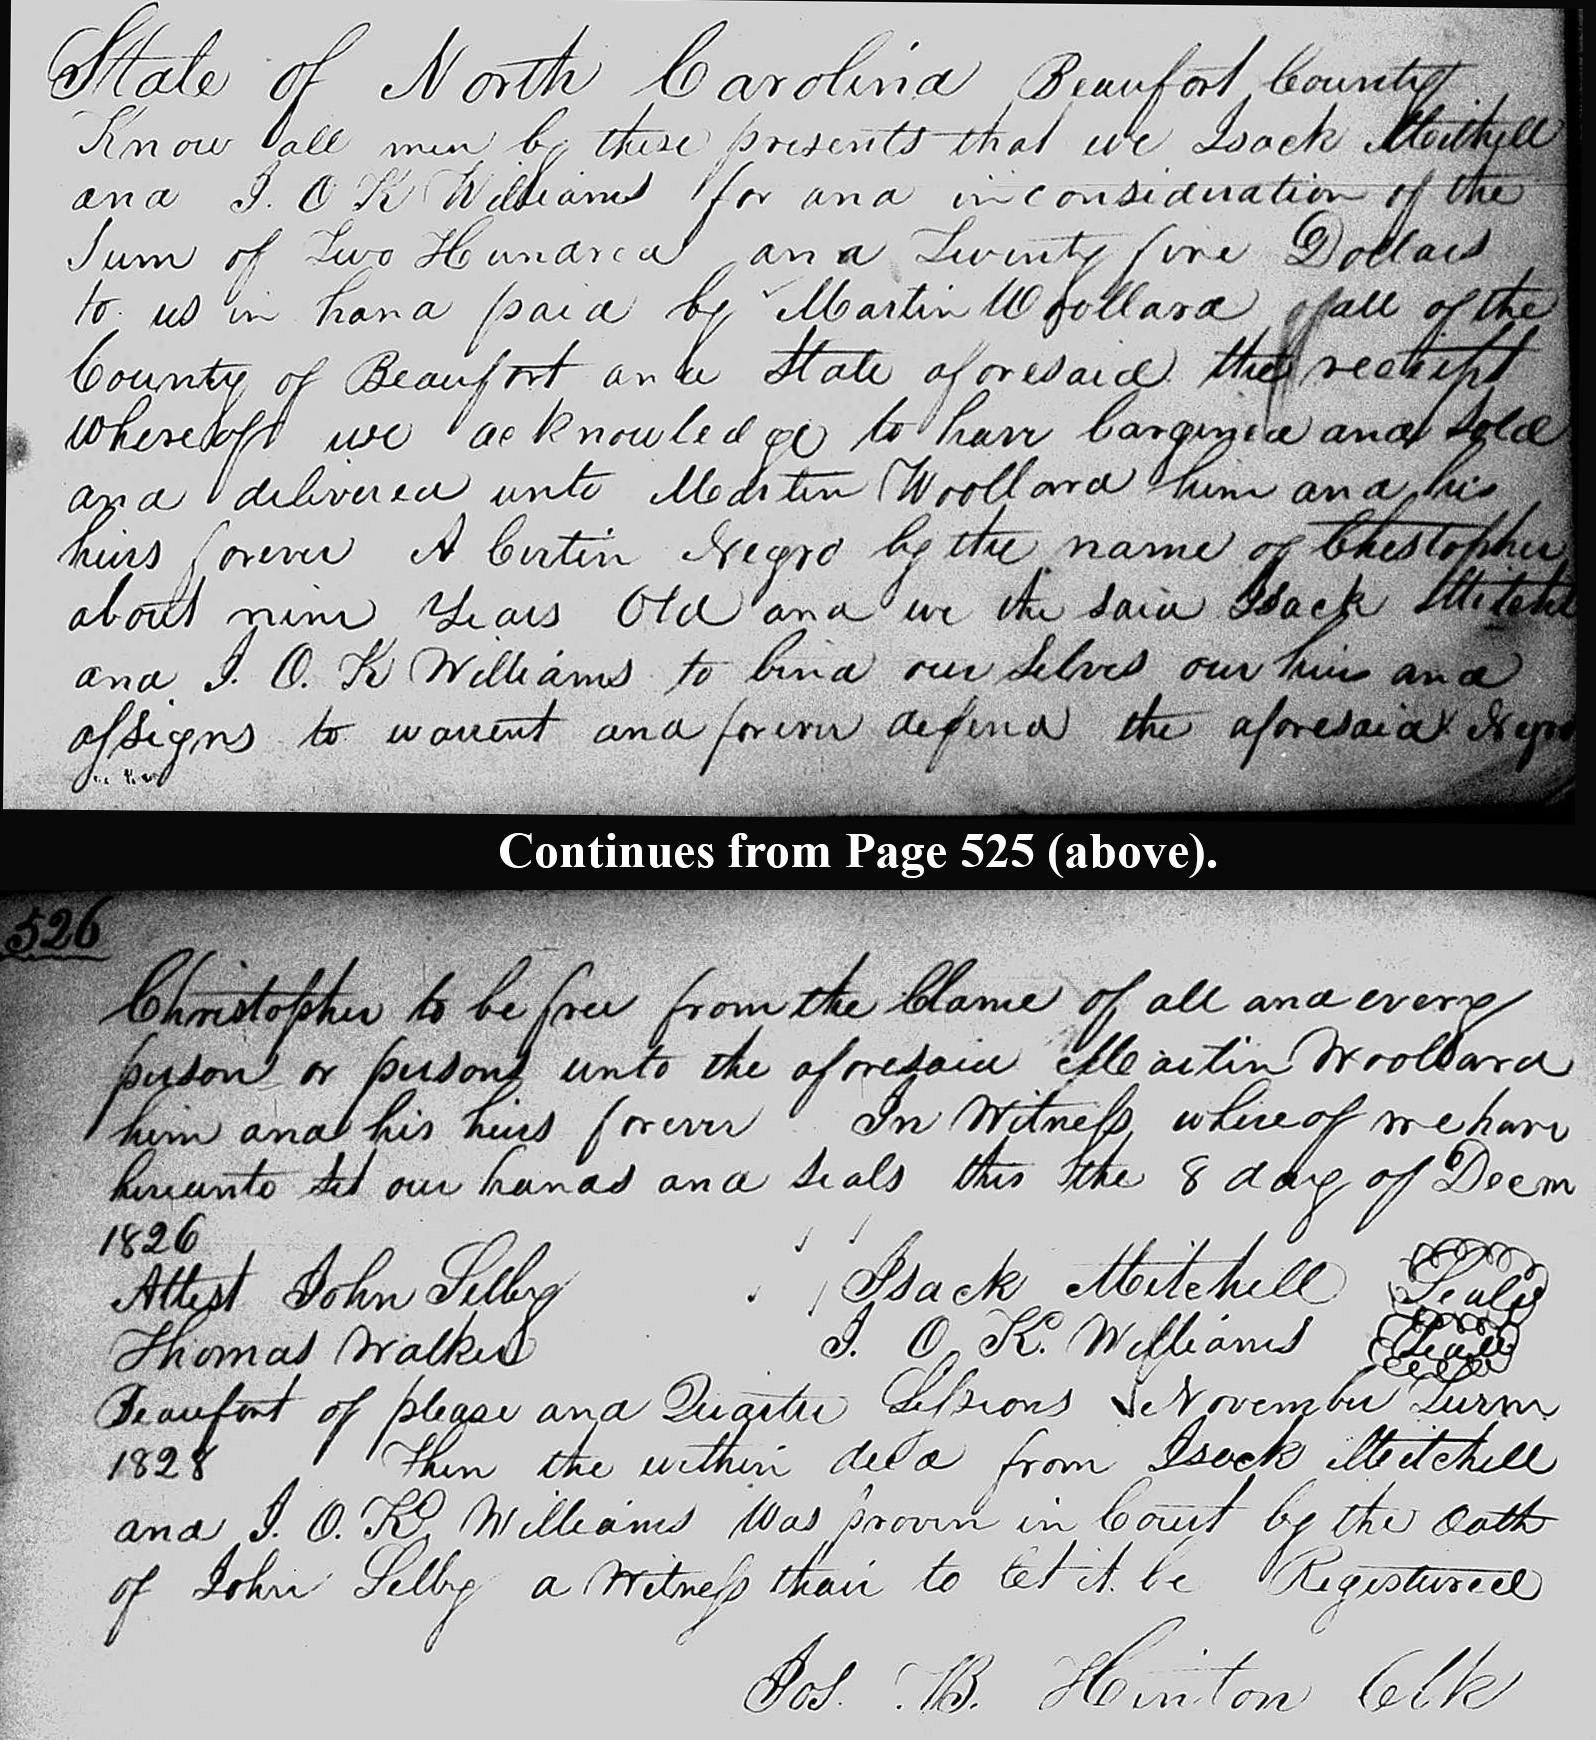 State of North Carolina Beaufort County
Know all men by these presents that we Isack Mitchell
and J. O K Williams for and inconsideration of the
Sum of Two Hundred and Twenty five Dollars
to us in hand paid by Martin Woollard of all of the
County of Beaufort and State aforesaid the receipt
whereof we acknowledge to have bargined and Sold
and delivered unto Martin Woollard him and his
heirs forever A Certin Negro by the name of Chestopher
about nine Years Old and we the said Isack Mitchell
and J. O. K Williams to bind our Selves our heirs and
assigns to warrent and forever defend the aforesaid Negro
Continues from Page 525 (above).
526
Christopher to be free from the Clame of all and every
person or persons unto the aforesaid Martin Woollard
him and his heirs forever In Witness whereof we have
hereunto Set our hands and seals this the 8 day of Decm
1826
Attest John Selby Isack Mitchell Seal
Thomas Walker J. O. K. Williams Seal
Beaufort of please and Quarter Sessions November Turm
1828 Then the within deed from Isack Mitchell
and J. O. K. Williams Was proven in Court by the Oath
of John Selby a Witness thair to let it be Registured
Jos. B. Hinton Clk